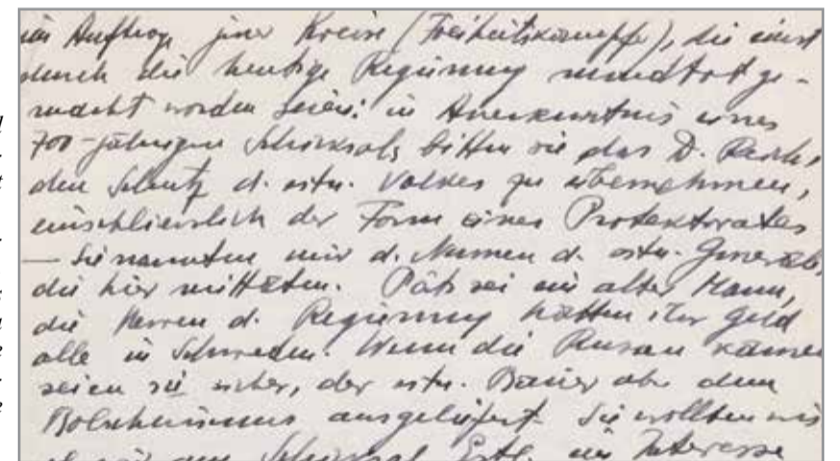 im Auftrage jener Kreise (Freiheitskämpfer), die einst
durch die heutige Regierung mundtot ge-
macht worden seien: in Anerkenntnis eines
700-jährigen Schicksals bitten sie das D. Reich,
den Schutz d. estn. Volkes zu übernehmen,
einschliesslich der Form eines Protektorates
— Sie nannten mir d. Namen d. estn. Generäle,
die hier mittäten. Päts sei ein alter Mann,
die Herren d. Regierung hätten ihr Geld
alle in Schweden. Wenn die Russen kämen
seien sie sicher, der estn. Bauer aber dem
Bolschewismus ausgeliefert. Sie wollten
Schicksal Estl. im Interesse